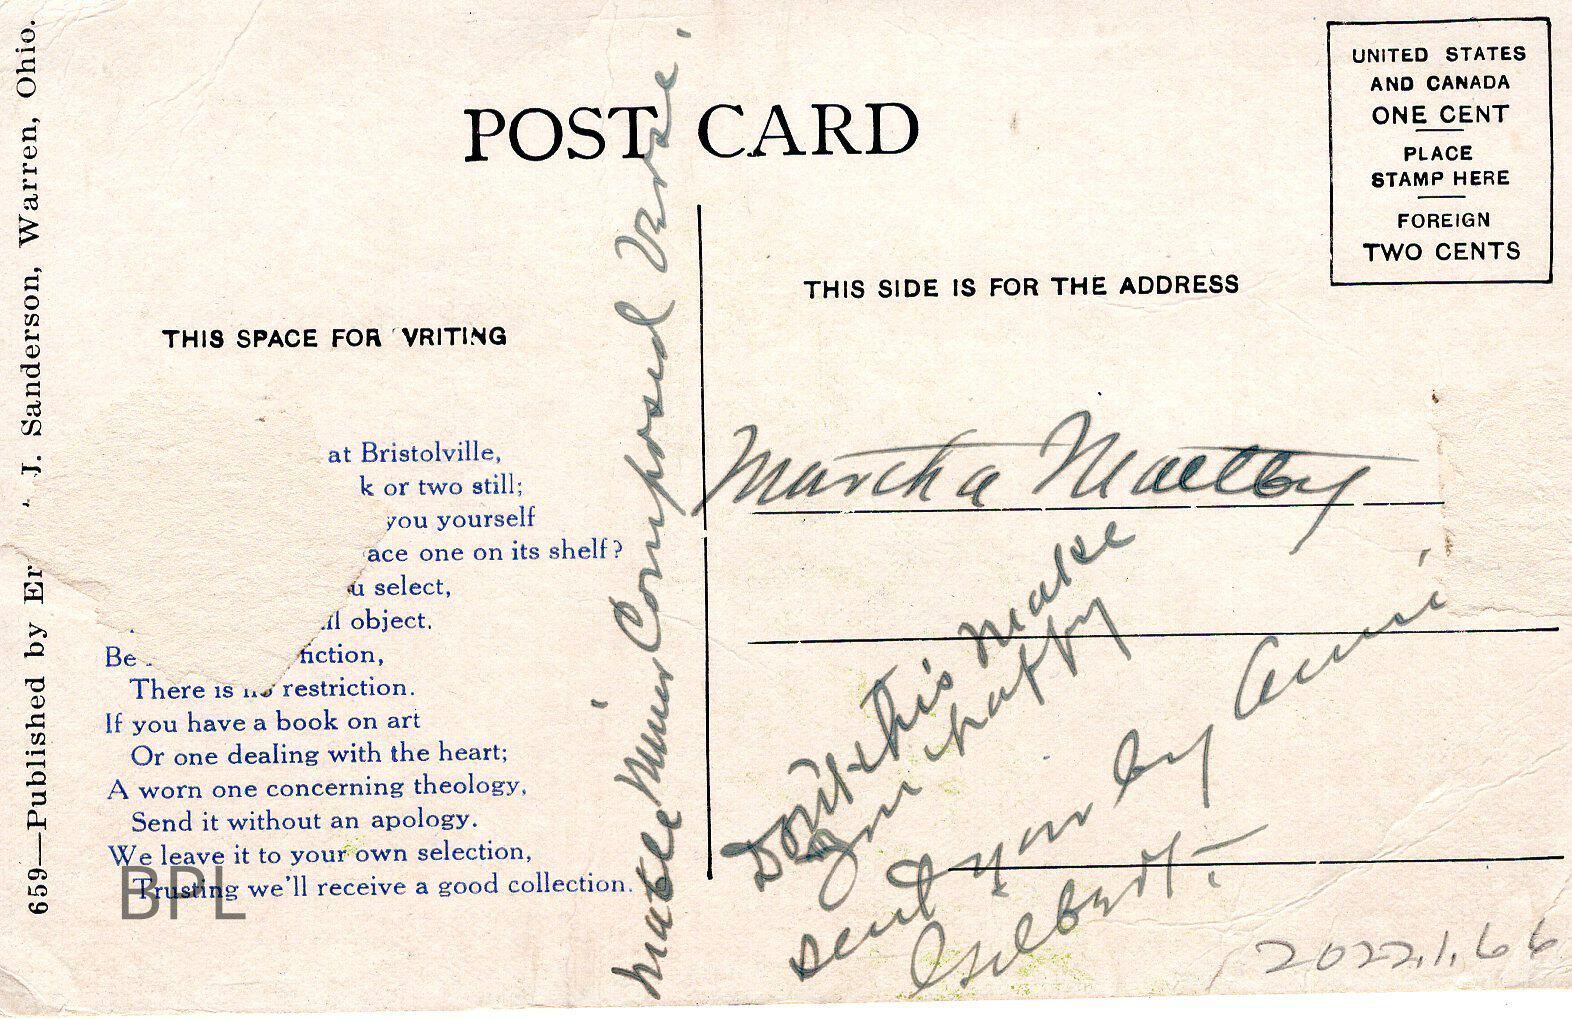 POST CARD
UNITED STATES
AND CANADA
ONE CENT
PLACE
STAMP HERE
FOREIGN
TWO CENTS
THIS SPACE FOR VRITING
THIS SIDE IS FOR THE ADDRESS
659—Published by Er J. Sanderson, Warren, Ohio.
at Bristolville,
k or two still;
you yourself
ace one on its shelf?
u select,
ll object.
Be fiction,
There is no restriction.
If you have a book on art
Or one dealing with the heart;
A worn one concerning theology,
Send it without an apology.
We leave it to your own selection,
Trusting we'll receive a good collection.
BPL
Mable Miner Composed Verse
Martha Maltby
Don't this make
you happy
sent you by Annie
Gilbert.
2022.1.66